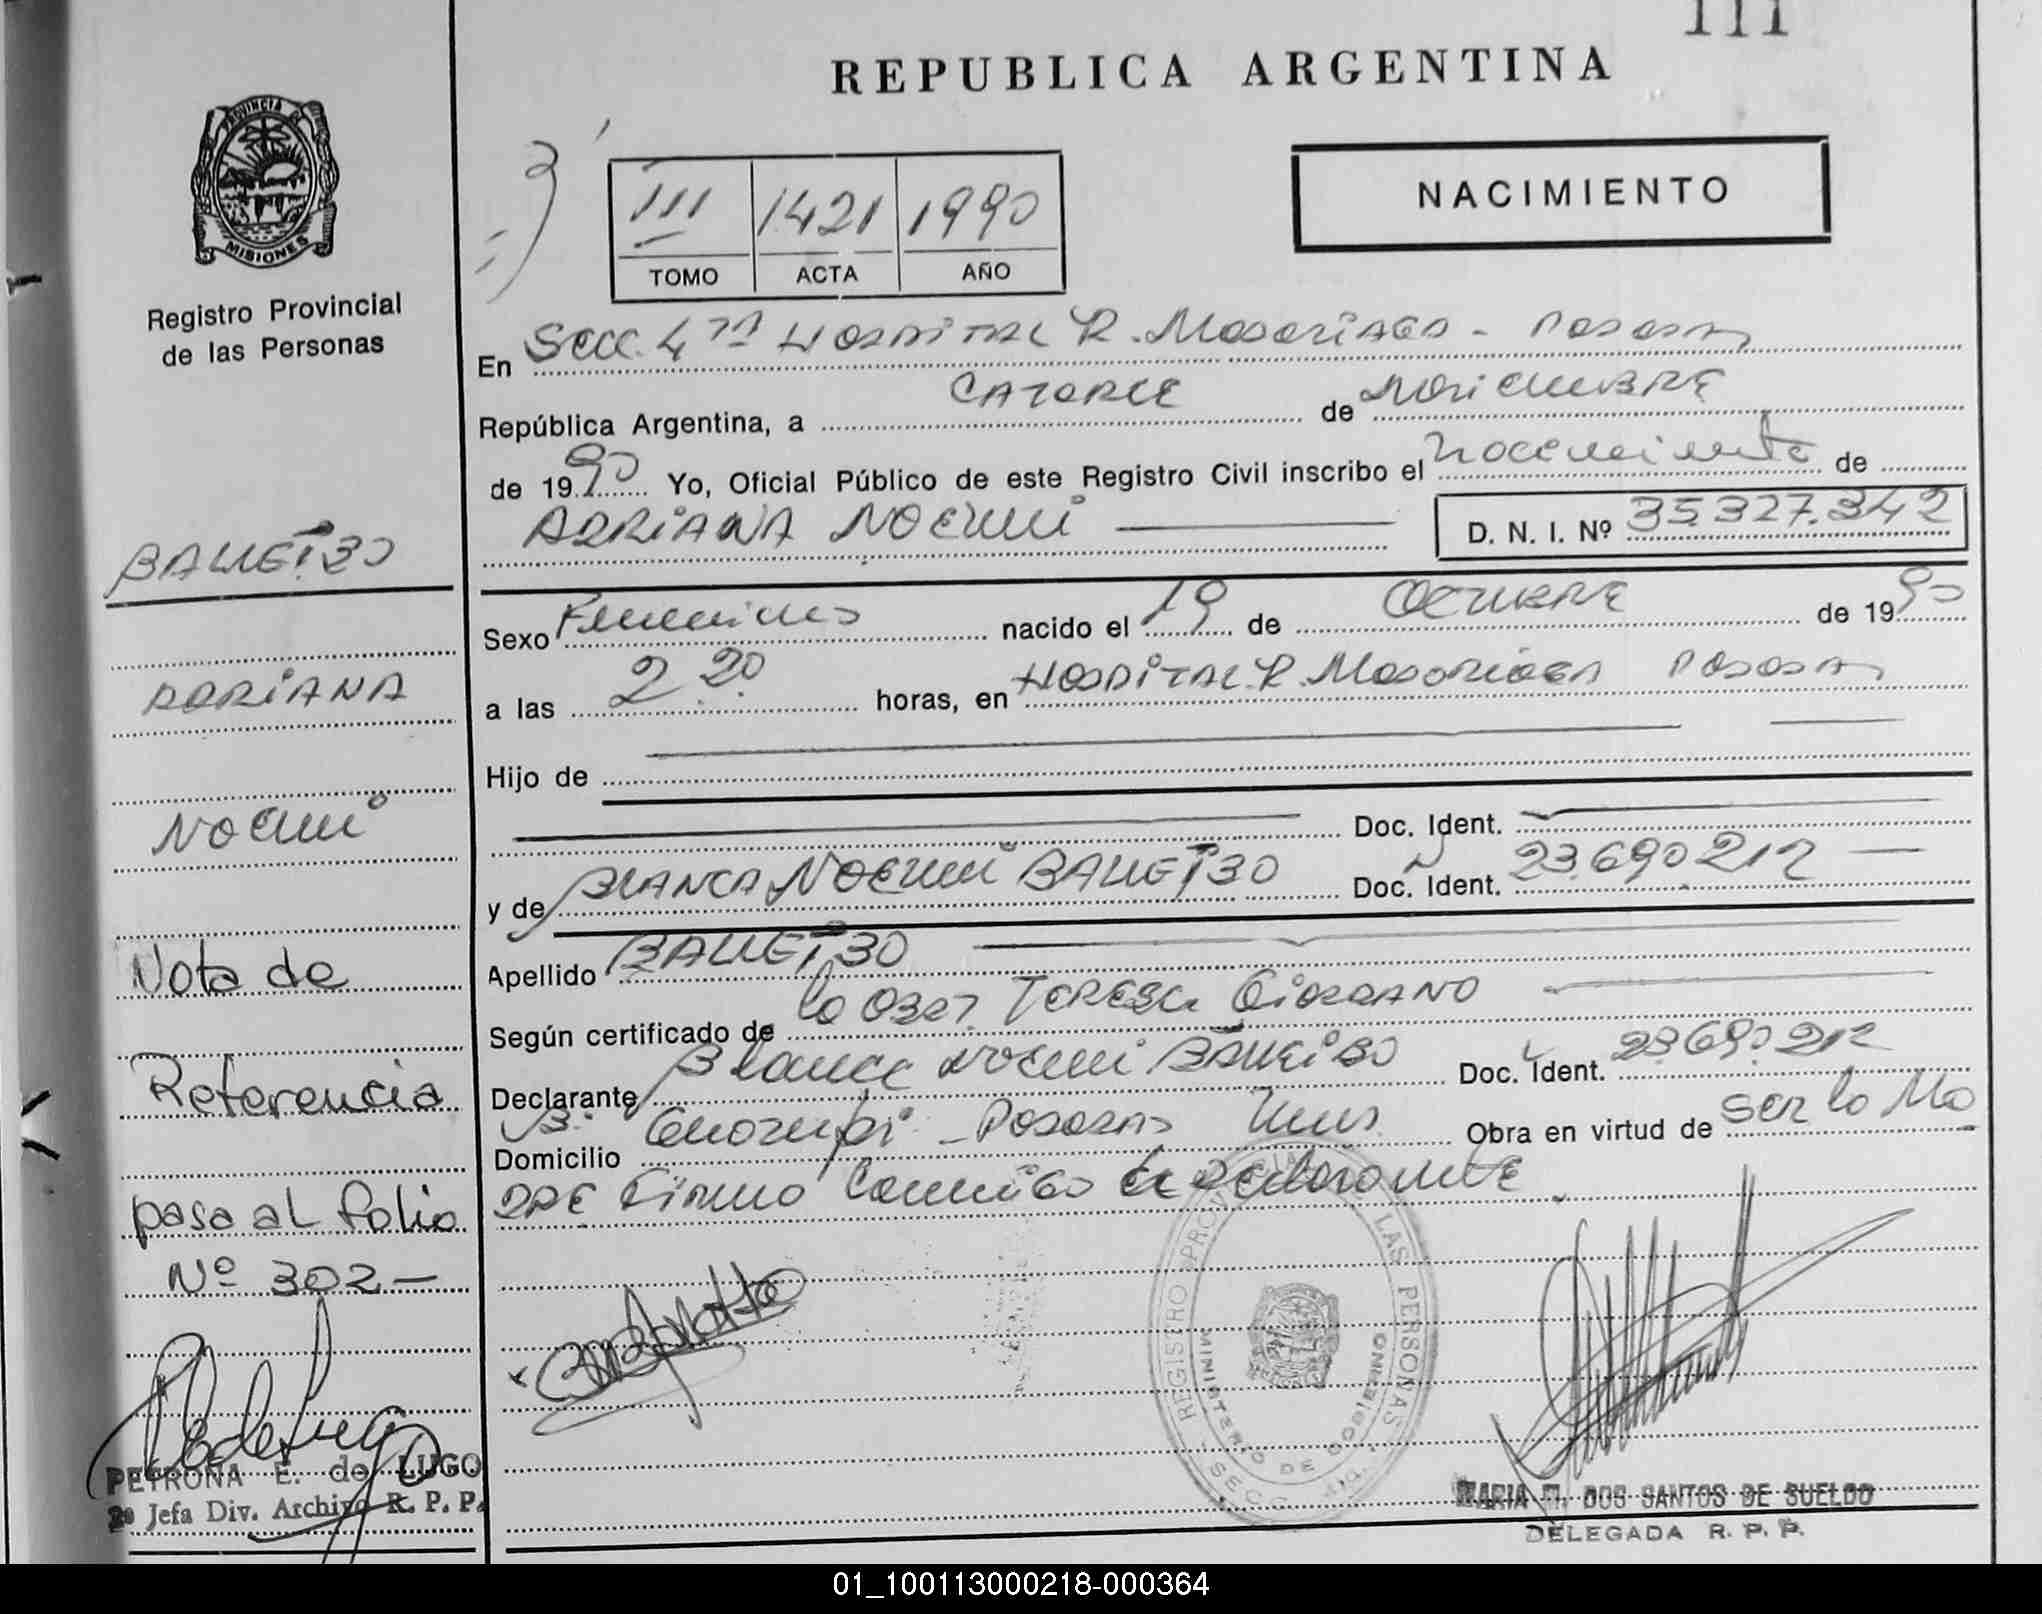 111
REPUBLICA ARGENTINA
PROVINCIA DE
MISIONES
Registro Provincial
de las Personas
III 1421 1990
TOMO ACTA AÑO
NACIMIENTO
En Secc. 4ta HOSPITAL R. Madariaga - Posadas
República Argentina, a CATORCE de NOViEMBRE
de 1990 Yo, Oficial Público de este Registro Civil inscribo el nacimiento de
ADRIANA NOEMI D. N. I. Nº 35.327.342
Sexo Femenino nacido el 19 de OCTUBRE de 1990
a las 2 20 horas, en HOSPITAL R. Madariaga Posadas
Hijo de
Doc. Ident.
y de BLANCA NOEMI Doc. Ident. 23.690.212
Apellido
Según certificado de la Obst. TERESA GIORDANO
Declarante Blanca Noemi Doc. Ident. 23690212
Domicilio B: Posadas Mnes Obra en virtud de Ser la Ma
dre Firmo Conmigo la Declarante
ADRIANA
NOEMI
Nota de
Referencia
pasa al folio
Nº 302-
PETRONA E. de LUGO
2º Jefa Div. Archivo R. P. P.
REGISTRO PROVINCIAL DE LAS PERSONAS
MINISTERIO DE GOBIERNO
SECC.
MARIA DOS SANTOS DE SUELDO
DELEGADA R. P. P.
01_100113000218-000364